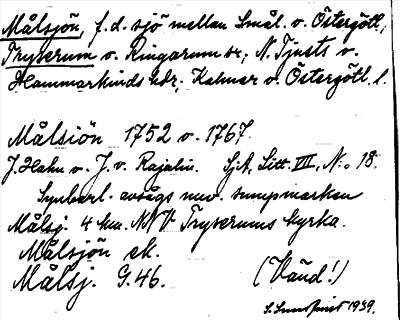 Målsjön, f.d. sjö mellan Smål. o. Östergötl.,
Tryserum o. Ringarum sr; N. Tjusts o.
Hammarkinds hdr; Kalmar o. Östergötl. l.
Målsiön 1752 o. 1767.
J. Hahn o. J. v. Rajalin. SjA, Litt. VIII, N:o 18.
Synbarl. avsågs nuv. sumpmarken
Målsj. 4 km. NNV Tryserums kyrka.
Målsjön ek.
Målsj. G. 46.
(Vänd!)
1939.